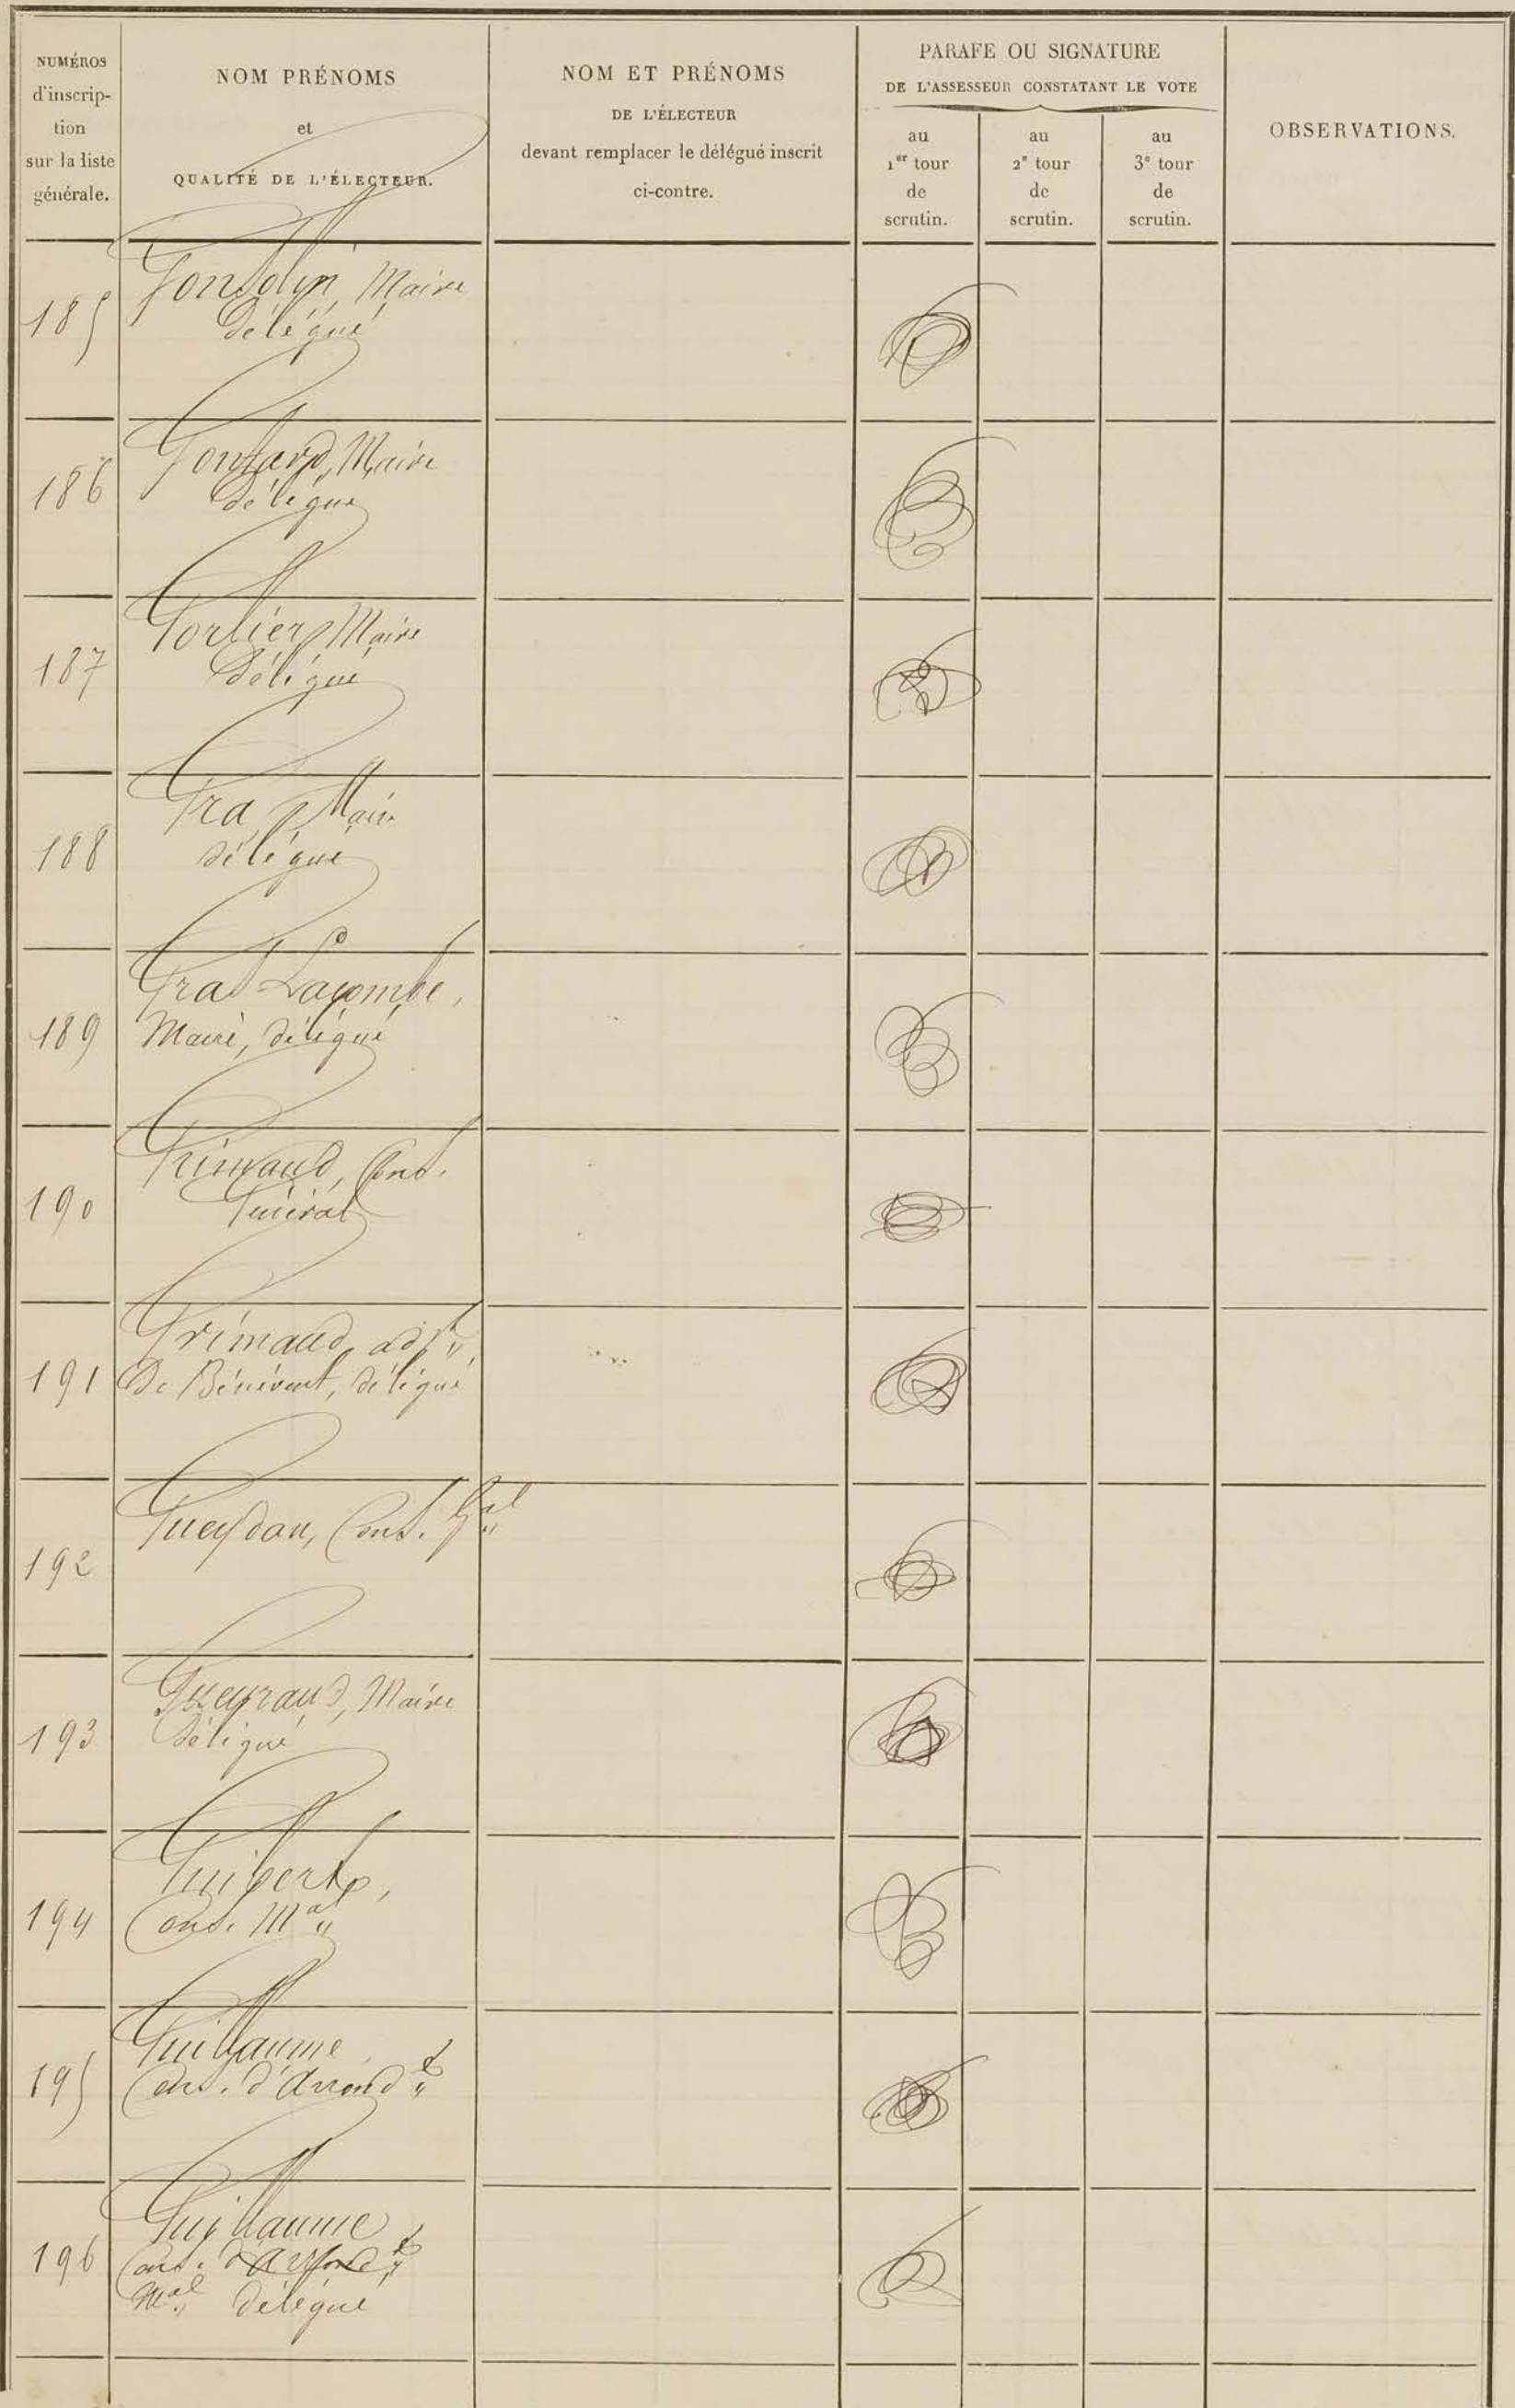 NUMÉROS
d'inscrip-
tion
sur la liste
générale.
NOM PRÉNOMS
et
QUALITÉ DE L'ÉLECTEUR.
NOM ET PRÉNOMS
DE L'ÉLECTEUR
devant remplacer le délégué inscrit
ci-contre.
PARAFE OU SIGNATURE
DE L'ASSESSEUR CONSTATANT LE VOTE
au
1er tour
de
scrutin.
au
2e tour
de
scrutin.
au
3e tour
de
scrutin.
OBSERVATIONS.
185
Gonsolin, Maire
Délégué
186
Maire
Délégué
187
Gorlier, Maire
Délégué
188
Gra, Maire
délégué
189
Gras-Lacombe,
Maire, délégué
190
Grimaud, Cons.
Général
191
Grimaud, adjt
De Bénévent, délégué
192
Gueydan, Cons. Gal
193
Gueyraud, Maire
Délégué
194
Guibert,
Cons. Mal
195
Guillaume,
Cons. d'Arrondt
196
Guillaume
Cons. d'Arrondt
Mal délégué